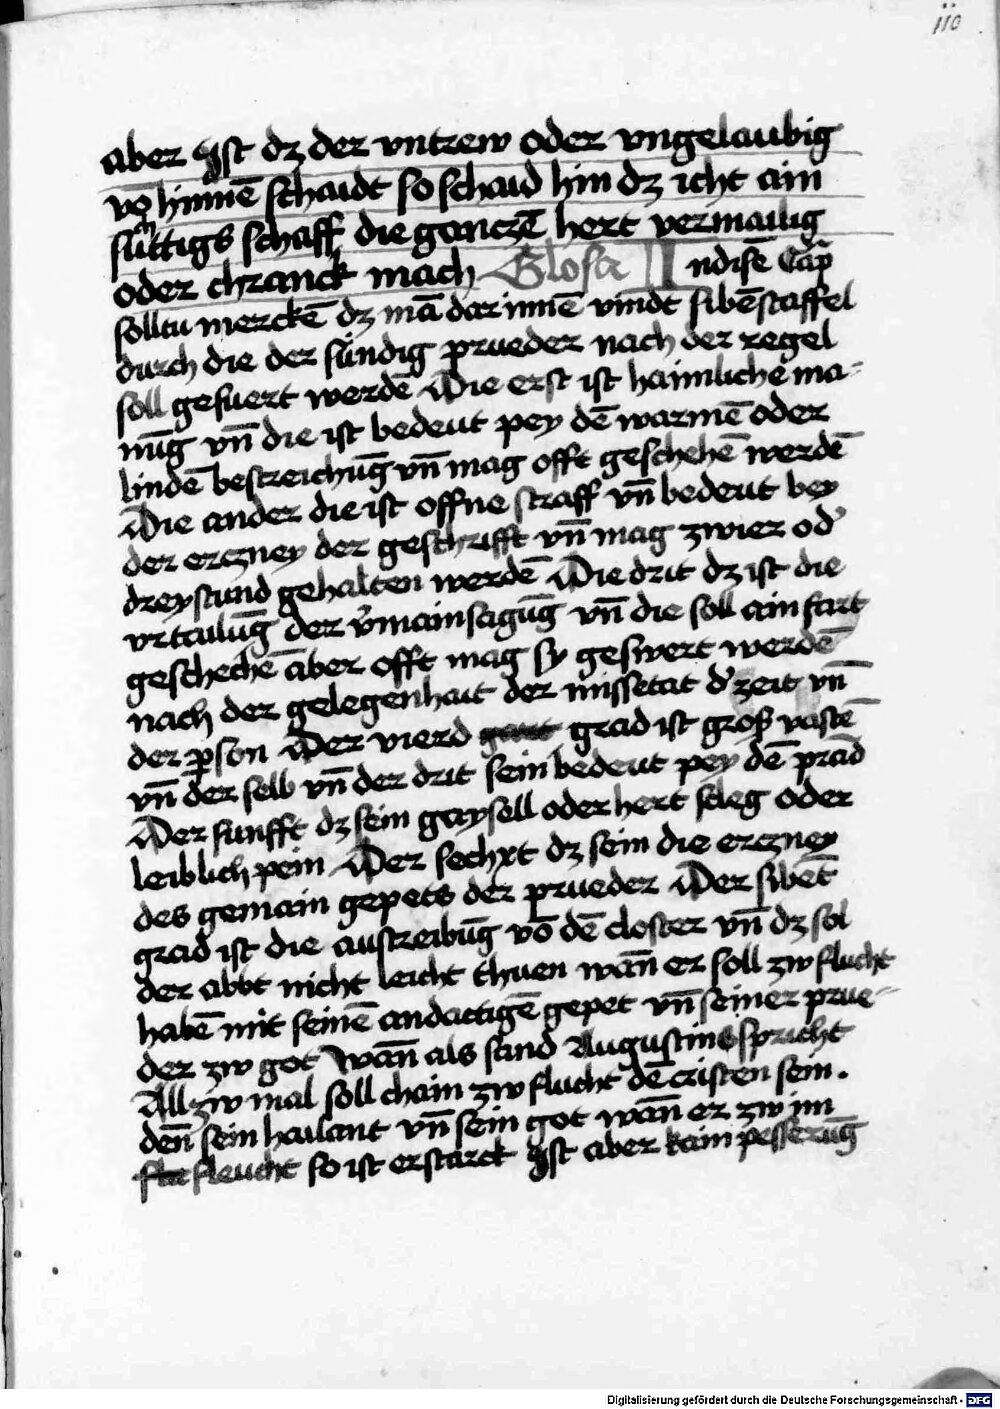 110
aber Ist dz der vntrew oder vngelaubig
vō hinnē schaidt so schaid hin dz icht ain
schaff die ganczē hert vermailig
oder chranck mach Glosa In disē Cap
solltu merckē dz mā dar innē vindt sibē staffel
durch die der sündig prueder nach der regel
soll gefuert werdē Die erst ist haimlichē ma-
nūg vn̄ die ist bedeut pey dē warmē oder
lindē bestreichūg vn̄ mag offt geschehē werdē
Die ander die ist offne straff vn̄ bedeut bey
der erczney der geschrifft vn̄ mag zwier od'
dreystund gehalten werdē Die drit dz ist die
vrtailūg der v'mainsagūg vn̄ die soll ain fart
geschechē aber offt mag sy geswert werdē
nach der gelegenhait der missetat d' zeit vn̄
der pson Der vierd grad ist groß vastē
vn̄ der selb vn̄ der drit sein bedeut pey dē prād
Der funfft dz sein gaysell oder hert sleg oder
leiblich pein Der sechxt dz sein die erczney
des gemain gepets der prueder Der sibēt
grad ist die austreibūg vō dē closter vn̄ dz sol
der abbt nicht leicht thuen wān er soll zw flucht
habē mit seinē andactigē gepet vn̄ seiner prue-
der zw got wān als sand Augustinus spricht
All zw mal soll chain zw flucht dē cristen sein.
den̄ sein hailant vn̄ sein got wān er zw im
fleucht so ist er starck Ist aber kain pesserūg
Digitalisierung gefördert durch die Deutsche Forschungsgemeinschaft - DFG